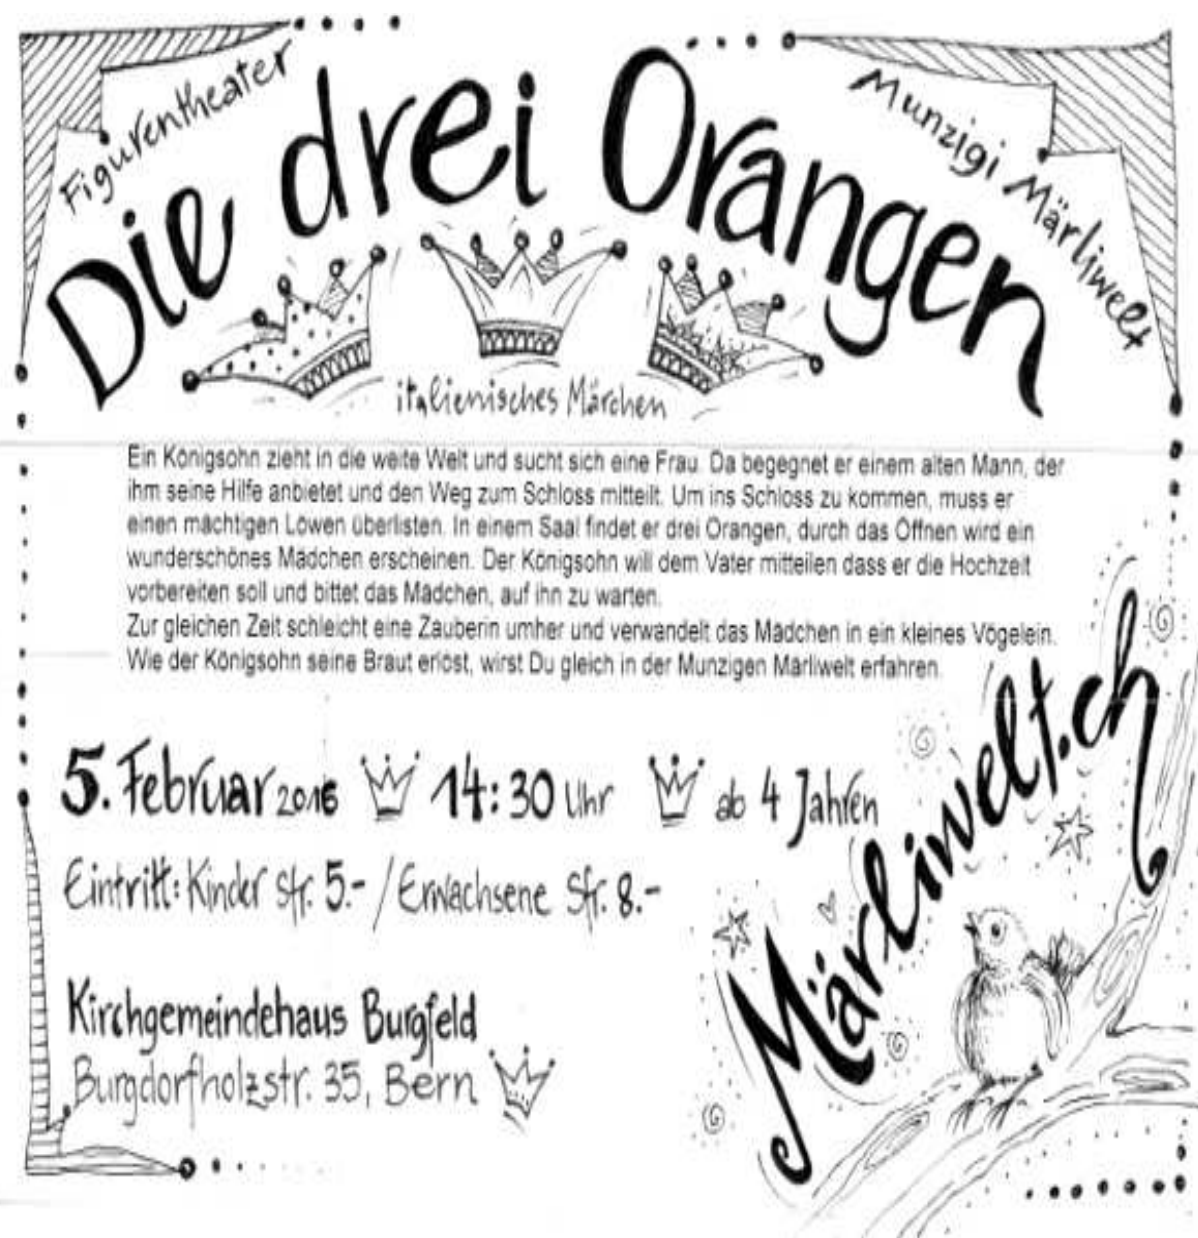 Figurentheater
Munzigi Märliwelt
Die drei Orangen
italienisches Märchen
Ein Königsohn zieht in die weite Welt und sucht sich eine Frau. Da begegnet er einem alten Mann, der
ihm seine Hilfe anbietet und den Weg zum Schloss mitteilt. Um ins Schloss zu kommen, muss er
einen mächtigen Löwen überlisten. In einem Saal findet er drei Orangen, durch das Öffnen wird ein
wunderschönes Mädchen erscheinen. Der Königsohn will dem Vater mitteilen dass er die Hochzeit
vorbereiten soll und bittet das Mädchen, auf ihn zu warten.
Zur gleichen Zeit schleicht eine Zauberin umher und verwandelt das Mädchen in ein kleines Vögelein.
Wie der Königsohn seine Braut erlöst, wirst Du gleich in der Munzigen Märliwelt erfahren.
5. Februar 2016 14:30 Uhr ab 4 Jahren
Eintritt: Kinder sfr. 5.- / Erwachsene sfr. 8.-
Kirchgemeindehaus Burgfeld
Burgdorfholzstr. 35, Bern
Märliwelt.ch